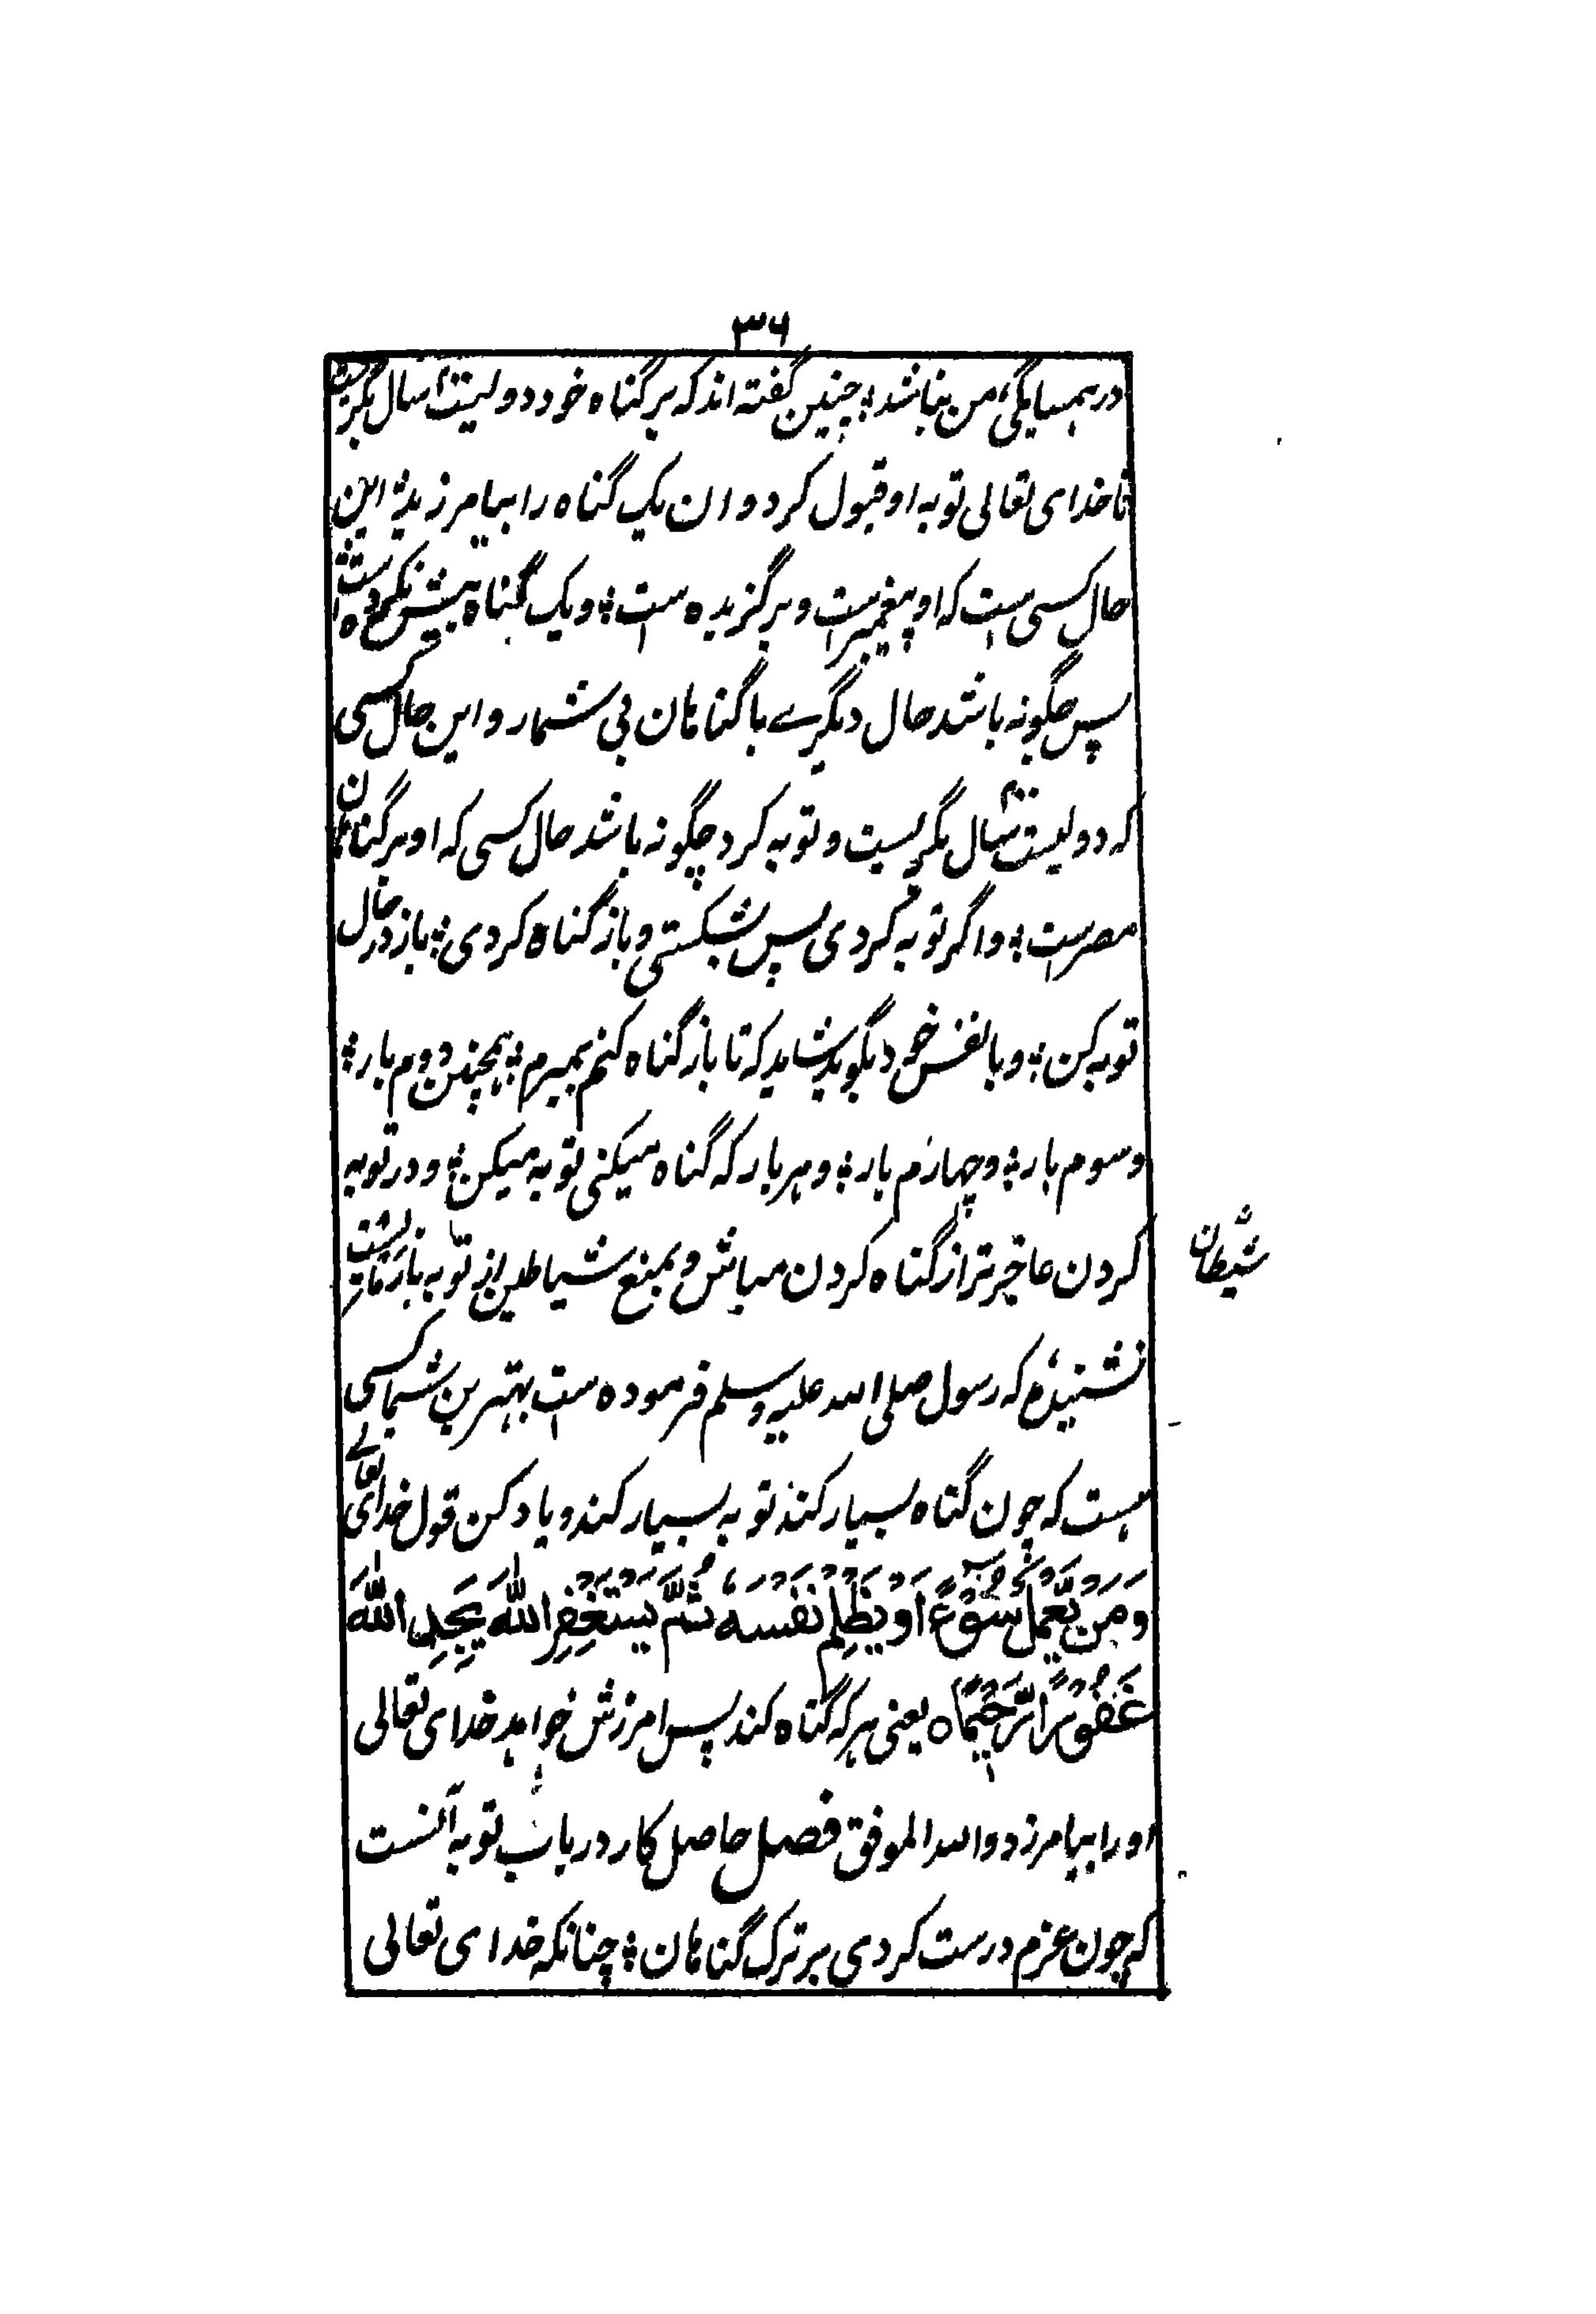 ۳۶
در همسایگی من نباشد ؛ چنین گفته اند که بر گناه خود دولیست سال بگریست
تا خدای تعالی توبه او قبول کرد و ان یک گناه را بیامرزید ؛ این
حال کسی است که او پیغمبرست و برگزیده است ؛ و یک گناه بیش نکرده است ؛
پس چگونه باشد حال دیگرے با گناهان بی شمار و این حال کسی
که دولیست سال بگریست و توبه کرد چگونه باشد حال کسی که او بر گناهان
مصرست ؛ و اگر توبه کردی پس بشکستی و باز گناه کردی ؛ باز در حال
توبه کن ؛ و با نفس خود بگوید شاید که تا باز گناه کنم بمیرم ؛ همچنین دوم بار ؛
و سوم بار ؛ و چهارم بار ؛ و هر بار که گناه میکنی توبه میکن ؛ و در توبه
کردن عاجزتر از گناه کردن مباش و بمنع شیاطین از توبه باز
شیطان
نشنیدهٔ که رسول صلی الله علیه وسلم فرموده است بهترین شما کسی
هست که چون گناه بسیار کند توبه بسیار کند و یاد کن قول خدای تعالے
وَمَنْ يَّعْمَلْ سُوْٓءًا اَوْ يَظْلِمْ نَفْسَهٗ ثُمَّ يَسْتَغْفِرِ اللّٰهَ يَجِدِ اللّٰهَ
غَفُوْرًا رَّحِيْمًا ه یعنی هر که گناه کند پس امرزش خواهد خدای تعالی
او را بیامرزد والله الموفق فصل حاصل کار در باب توبه آنست
که چون عزم درست کردی بر ترک گناهان ؛ چنانکه خدای تعالی